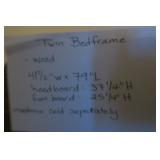 Twin Bedframe
- wood
41 1/2" W x 79" L
headboard: 37 1/4" H
foot board: 25 1/4" H
mattress sold separately